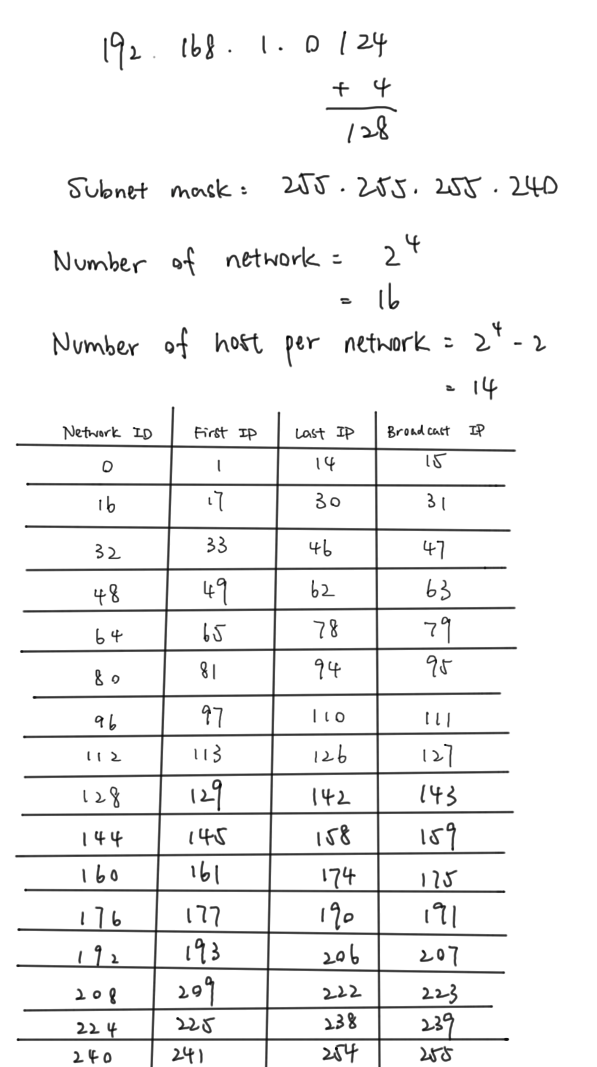 192.168.1.0/24
+ 4
/28
Subnet mask: 255.255.255.240
Number of network = 2^4
= 16
Number of host per network = 2^4 - 2
= 14
Network ID First IP Last IP Broadcast IP
0 1 14 15
16 17 30 31
32 33 46 47
48 49 62 63
64 65 78 79
80 81 94 95
96 97 110 111
112 113 126 127
128 129 142 143
144 145 158 159
160 161 174 175
176 177 190 191
192 193 206 207
208 209 222 223
224 225 238 239
240 241 254 255